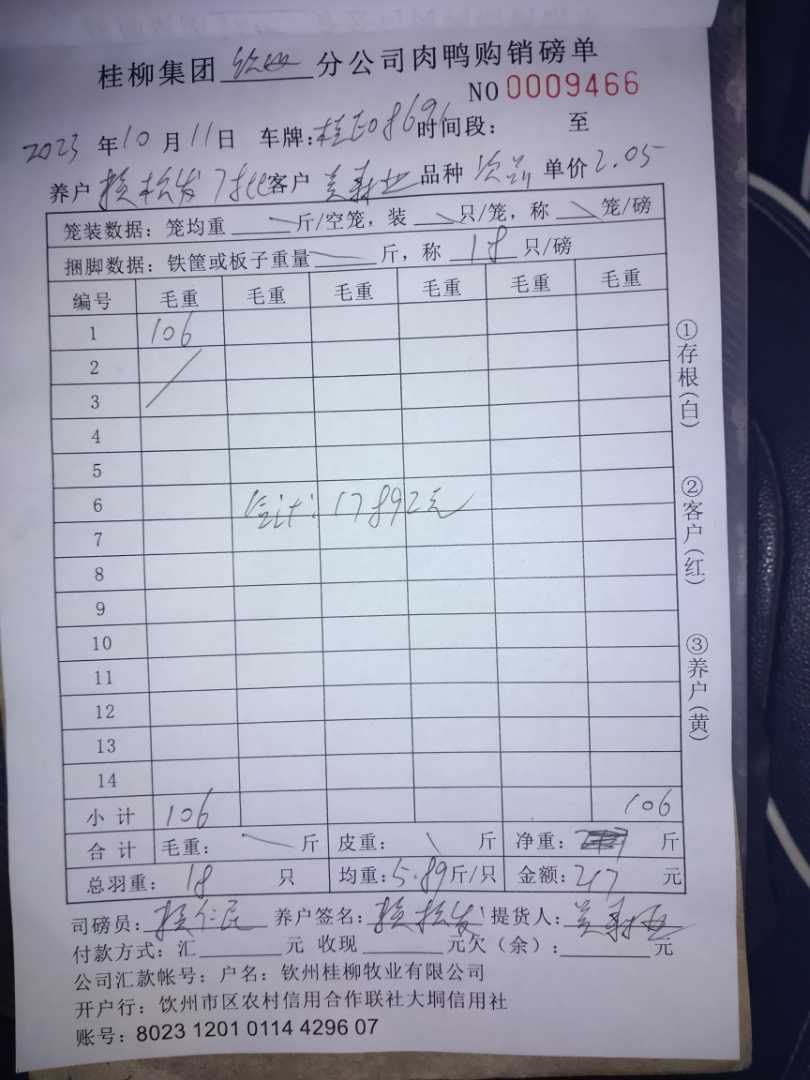 桂柳集团 钦州 分公司肉鸭购销磅单
NO 0009466
2023 年 10 月 11 日 车牌: 桂E08696 时间段: 至
养户 松发 7批 客户 品种 次品 单价 2.05
笼装数据: 笼均重 斤/空笼, 装 只/笼, 称 笼/磅
捆脚数据: 铁筐或板子重量 斤, 称 18 只/磅
编号 毛重 毛重 毛重 毛重 毛重 毛重
1 106
2
3
4
5
6
合计: 17892元
7
8
9
10
11
12
13
14
小 计 106 106
合 计 毛重: 斤 皮重: 斤 净重: 斤
总羽重: 18 只 均重: 5.89 斤/只 金额: 217 元
司磅员: 仁民 养户签名: 松发 提货人:
付款方式: 汇 元 收现 元欠(余): 元
公司汇款帐号: 户名: 钦州桂柳牧业有限公司
开户行: 饮州市区农村信用合作联社大垌信用社
账号: 8023 1201 0114 4296 07
①存根(白)
②客户(红)
③养户(黄)